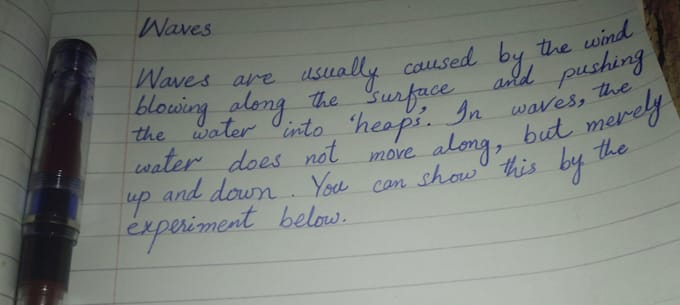 Waves
Waves are usually caused by the wind
blowing along the surface and pushing
the water into 'heaps'. In waves, the
water does not move along, but merely
up and down. You can show this by the
experiment below.